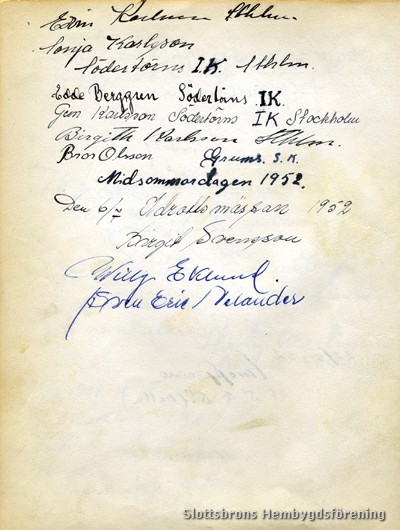 Karlsson Sthlm.
Sonja Karlsson
Södertörns I.K. Sthlm.
Edde Berggren Södertörns IK.
Gen Karlsson Södertörns IK Stockholm
Birgitta Karlsson Sthlm.
Bror Olsson Grums. S.K.
Midsommardagen 1952.
Den 6/V Idrottsmässan 1952
Birgit Svensson
Willy Eklund.
Sven Eric Melander
Slottsbrons Hembygdsförening